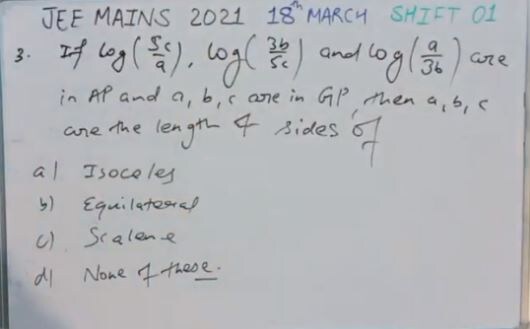 JEE MAINS 2021 18th MARCH SHIFT 01
3. If log(5c/a), log(3b/5c) and log(a/3b) are
in AP and a, b, c are in GP, then a, b, c
are the length of sides of
a) Isoceles
b) Equilateral
c) Scalene
d) None of these.